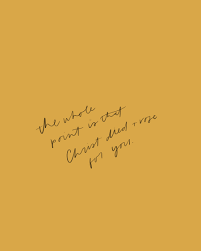 the whole
point is that
Christ died + rose
for you.